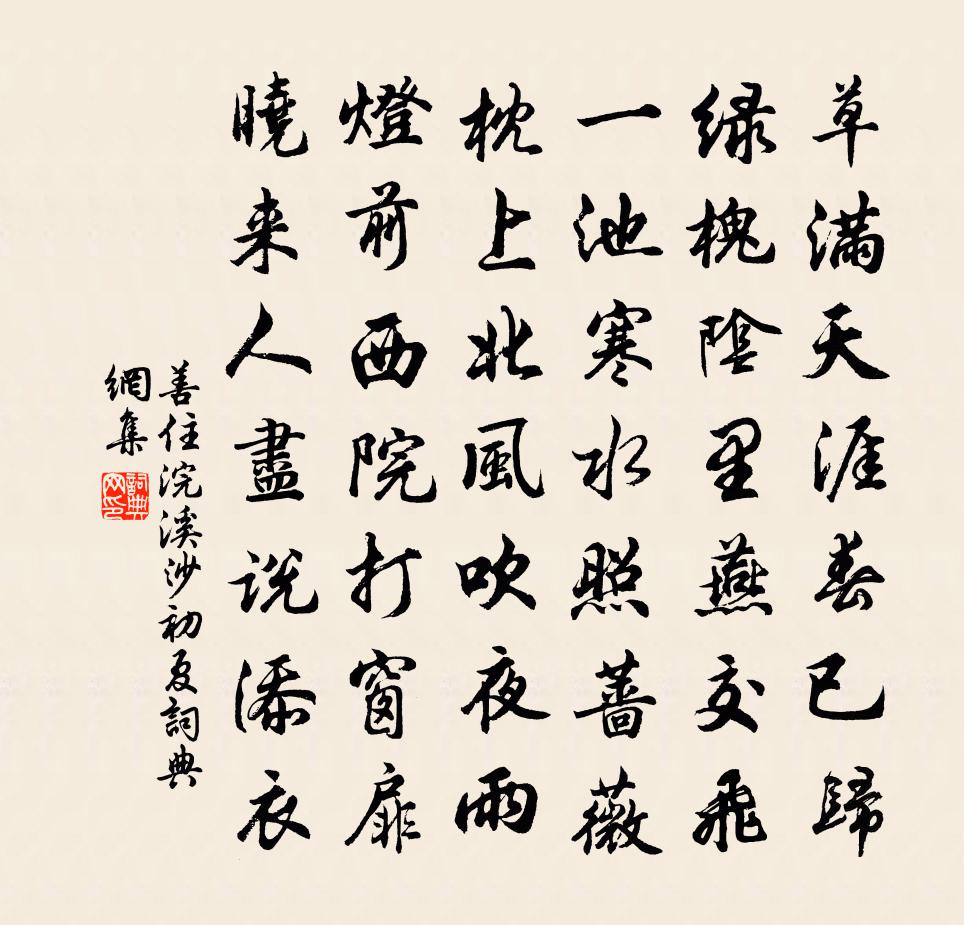 草滿天涯春已歸
绿槐陰里燕交飛
一池寒水照薔薇
枕上北風吹夜雨
燈前西院打窗扉
曉来人盡説添衣
善住浣溪沙初夏詞典
網集
詞典網印